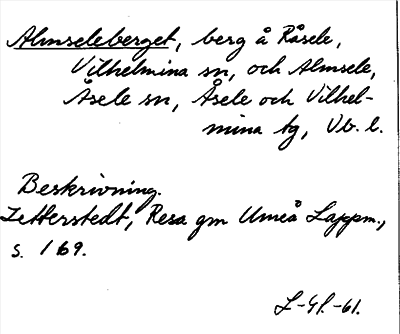 Almseleberget, berg å Råsele,
Vilhelmina sn, och Almsele,
Åsele sn, Åsele och Vilhel-
mina tg, Vb. l.
Beskrivning.
Zetterstedt, Resa gm Umeå Lappm.,
s. 169.
L-Gl.-61.